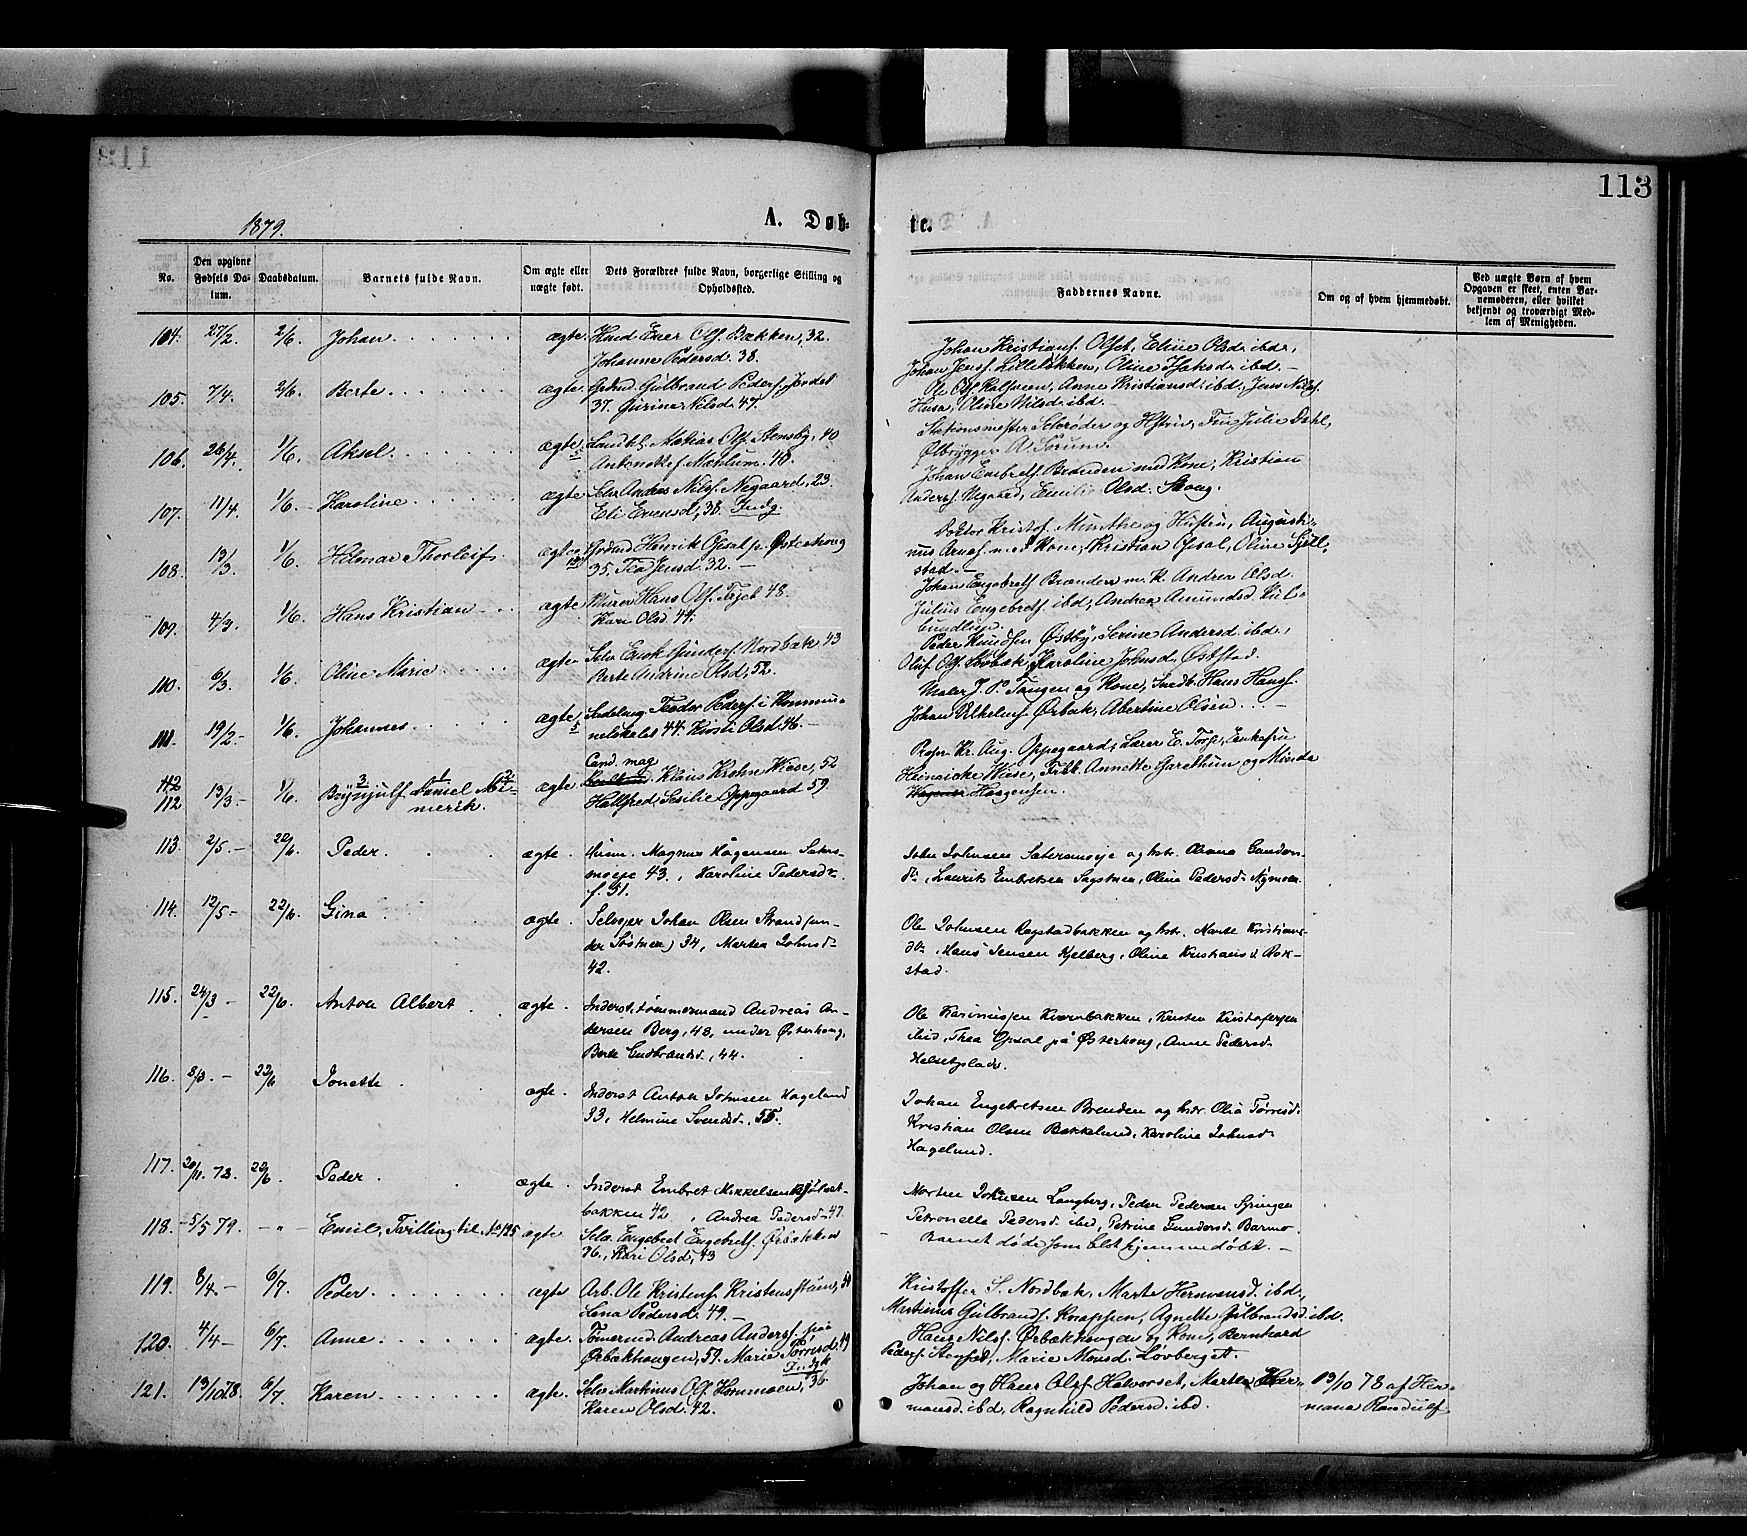 113
1879.
A. Døb-
te.
No.
Den opgivne Fødsels Datum.
Daabsdatum.
Barnets fulde Navn.
Om ægte eller uægte født.
Dets Forældres fulde Navn, borgerlige Stilling og Opholdssted.
Faddernes Navne.
Om og af hvem hjemmedøbt.
Ved uægte Børn af hvem Opgaven er skeet, enten Barnemoderen, eller hvilket bekjendt og troværdigt Medlem af Menigheden.
104. 27/2. 2/6. Johan ægte. Olss. Bækken, 32.
Johanne Pedersd. 38.
Johan Kristians. Olset, Eline Olsd. ibd.,
Johan Jenss. Lilleløkken, Oline Isaksd. ibd. —
105. 7/4. 2/6. Berte ægte Grdmd. Gulbrand Peders. Jordet
37. Gurine Nilsd. 47.
Ole Olss. Anne Kristiansd. ibd, Jens Nilss.
Husa, Oline Nilsd. ibd. —
106. 26/4. 1/6. Aksel. ægte Mathias Olss. Stensby, 40
Antonette f. Mæhlum. 40.
Stationsmester Schrøder og Hustru, Frk Julie Dahl,
Ølbrygger A. Sørum.
107. 11/4. 1/6. Karoline ægte Selv Anders Nilss. Negaard, 23.
Eli Evensd, 38. Indg.
Johan Embrets. Brænden med Kone, Kristian
Anderss. Negaard, Emilie Olsd. Skoug.
108. 13/3. 1/6. Helmar Thorleif ægte Grdmd Henrik Opsal p. Østerhoug
35. Tea Jensd. 32. —
Doktor Kristof. Munthe og Hustru, Augusti-
nus Arness. med Kone, Kristian Opsal, Oline Sjell-
stad. —
109. 4/3. 1/6. Hans Kristian ægte Murer Hans Olss. 48.
Kari Olsd. 44.
Johan Engebrets. Brænden m. K. Andrea Olsd.
Julius Engebrets. ibd, Andrea Amundsd.
110. 6/3. 1/6. Oline Marie ægte Selv. Erik Gunders. Nordbæk 43
Berte Andrine Olsd, 52.
Peder Knudsen Østby, Serine Andersd. ibd.,
Oluf Olss. Karoline Johnsd, Øststad.
111. 19/2. — 1/6. Johannes ægte Teodor Peders. i Kommu-
nelokalet 44. Kirsti Olsd. 46. —
Maler J. P. Tangen og Kone, Snedk. Hans Hanss.
Johan Vilhelms. Ørbæk, Abertine Olsen —
112 112 13/3. — 1/6. Brynjulf Daniel Al-
merik. ægte
Cand. mag
Klaus Krohn Wiese, 52
Hallfred Sesilie Oppegaard 59.
Kr. Aug. Oppegaard, Lærer E. Torp, Enkefru
Heinricke Wiese, Frkk. Annette Garethun og Minda
Haagensen.
113. 2/5. — 22/6. Peder. ægte. Husm. Magnus Hågensen Seters-
moeje 43., Karoline Pedersd.
f. 51.
John Johnsen Setersmoeje og hstr. Olivia Gunders-
d., Laurits Embretsen Sagstuen, Oline Pedersd. Nymoen
114. 12/5 — 22/6. Gina ægte. Selvejer Johan Olsen Strand (un-
der Sostuen) 34, Martea Johnsd.
42.
Ole Johnsen Ragstadbakken og hstr. Marte Kristians-
d., Hans Jensen Kjelberg, Oline Kristiansd. Rok-
stad.
115. 24/3 — 22/6. Anton Albert. ægte. Inderst, tømmermand Andreas An-
dersen Berg, 48, under Østerhoug,
Berte Gudbrandsd., 44.
Ole Kasimirsen Kvernbakken, Kristen Kristofersen
ibid, Thea Opsal på Østerhoug, Anne Pedersd.
116. 8/3. — 22/6 Jonette ægte. Inderst Anton Johnsen Hagelund
33, Helmine Svendsd., 55.
Johan Engebretsen Brenden og hstr. Olia Tørresd.
Kristian Olsen Bækkelund, Karoline Johnsd.
Hagelund.
117. 20/11. 78. 22/6. Peder ægte. Inderst Embret Mikkelsen
bakken 42, Andrea Pedersd. 47.
Morten Johnsen Langberg, Peder Pedersen Springen
Petronella Pedersd. ibid, Petrine Gundersd. Barmo.
118. 5/5 79. — „ — Emil, Tvilling til No 125 ægte Selv. Engebret Engebrets. Ørbækken
36., Kari Olsd., 43
— Barnet døde som blot hjemmedøbt. —
119. 8/4. — 6/7. Peder ægte Arb. Ole Kristens.
Lena Pedersd. 49. —
Kristoffer S. Nordbæk, Marte Hermansd. ibd.,
Martinus Gulbrands. Knappen, Agnette Gulbrandsd ibd.
120. 4/4 — 6/7. Anne ægte. Tømmermd. Andreas Anderss. på
Ørbækhaugen, 59. Marie Tørresd. 49
Hans Nilss. Ørbækhaugen og Kone, Bernhard
Peders. Marie Monsd. Løvberget.
121. 13/10 78. 6/7. Karen ægte.
Indg
Selv Martinus Olss. Hommoen, 36
Karen Olsd. 42.
Johan og Hans Olss. Halvorset, Martea Her-
mansd. ibd, Ragnhild Pedersd. ibd.
13/10 78 af Her-
mana Randulf